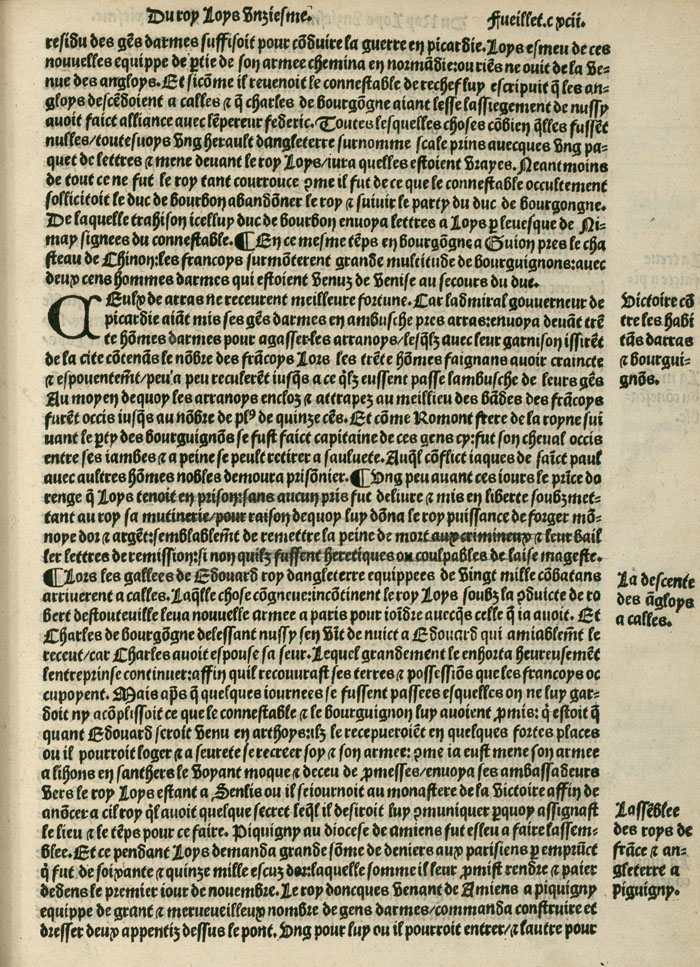 Du roy Loys Vnziesme. Fueillet.c xcii.
residu des gēs darmes suffisoit pour cōduire la guerre en picardie. Loys esmeu de ces
nouuelles equippe de ꝑtie de son armee chemina en normādie: ou riēs ne ouit de la ve-
nue des angloys. Et sicōme il reuenoit le connestable de rechef luy escripuit q̄ les an-
gloys descēdoient a calles ⁊ q̄ charles de bourgōgne aiant lesse lassiegement de nussy
auoit faict alliance auec lēpereur federic. Toutes lesquelles choses cōbien q̄lles fussēt
nulles/toutesuoys vng herault dangleterre surnomme scale prins auecques vng pa-
quet de lettres ⁊ mene deuant le roy Loys/iura quelles estoient vrayes. Neantmoins
de tout ce ne fut le roy tant courrouce ꝯme il fut de ce que le connestable occultement
sollicitoit le duc de bourbon abandōner le roy ⁊ suiuir le party du duc de bourgongne.
De laquelle trahison icelluy duc de bourbon enuoya lettres a Loys ꝑ leuesque de Ni-
may signees du connestable. ¶ En ce mesme tēps en bourgōgne a Guion pres le cha
steau de Chinon: les francoys surmōterent grande multitude de bourguignons: auec
deux cens hommes darmes qui estoient venuz de Venise au secours du duc.
CEulx de arras ne receurent meilleure fortune. Car ladmiral gouuerneur de
picardie aiāt mis ses gēs darmes en ambusche pres arras: enuoya deuāt trē
te hōmes darmes pour agasser les arranoys/lesq̄lz auec leur garnison issirēt
de la cite cōtenās le nōbre des frācoys Lors les trēte hōmes faignans auoir craincte
⁊ espouentemēt/peu a peu reculerēt iusqs a ce q̄lz eussent passe lambusche de leurs gēs
Au moyen dequoy les arranoys encloz ⁊ attrapez au meillieu des bādes des frācoys
furēt occis iusqs au nōbre de plꝰ de quinze cēs. Et cōme Romont frere de la royne sui
uant le ꝑty des bourguignōs se fust faict capitaine de ces gens cy: fut son cheual occis
entre ses iambes ⁊ a peine se peult retirer a sauluete. Auq̄l cōflict iaques de saīct paul
auec aultres hōmes nobles demoura prisōnier. ¶ Vng peu auant ces iours le prīce do
renge q̄ Loys tenoit en prison: sans aucun pris fut deliure ⁊ mis en liberte soubz met-
tant au roy sa mutinerie/pour raison dequoy luy dōna le roy puissance de forger mō-
noye dor ⁊ argēt: semblablemēt de remettre la peine de mort aux crimineux ⁊ leur bail
ler lettres de remission: si non quilz fussent heretiques ou coulpables de laise mageste.
¶ Lors les gallees de Edouard roy dangleterre equippees de vingt mille cōbatans
arriuerent a calles. Laq̄lle chose cōgneue: incōtinent le roy Loys soubz la ꝯduicte de ro
bert destouteuille leua nouuelle armee a paris pour ioīdre auecqs celle q̄ ia auoit. Et
Charles de bourgōgne delessant nussy sen vīt de nuict a Edouard qui amiablemēt le
receut/car Charles auoit espouse sa seur. Lequel grandement le enhorta heureusemēt
lentreprinse continuer: affin quil recouurast ses terres ⁊ possessiōs que les francoys oc
cupoyent. Mais apꝭs q̄ quelques iournees se fussent passees esquelles on ne luy gar-
doit ny acōplissoit ce que le connestable ⁊ le bourguignon luy auoient ꝓmis: q̄ estoit q̄
quant Edouard seroit venu en arthoys: ilz le recepueroiēt en quelques fortes places
ou il pourroit loger ⁊ a seurete se recreer soy ⁊ son armee: ꝯme ia eust mene son armee
a lihons en santhers le voyant moque ⁊ deceu de ꝓmesses/enuoya ses ambassadeurs
vers le roy Loys estant a Senlis ou il seiournoit au monastere de la victoire affin de
anōcer a cil roy q̄l auoit quelque secret leq̄l il desiroit luy ꝯmuniquer ꝑquoy assignast
le lieu ⁊ le tēps pour ce faire. Piquigny au diocese de amiens fut esleu a faire lassem-
blee. Et ce pendant Loys demanda grande sōme de deniers aux parisiens ꝑ emprūct
q̄ fut de soixante ⁊ quinze mille escuz dor: laquelle somme il leur ꝓmist rendre ⁊ paier
dedens le premier iour de nouembre. Le roy doncques venant de Amiens a piquigny
equippe de grant ⁊ merueueilleux nombre de gens darmes/commanda construire et
dresser deux appentiz dessus le pont. Vng pour luy ou il pourroit entrer/⁊ lautre pour
Victoire cō
tre les habi
tās darras
⁊ bourgui-
gnōs.
La descente
des āgloys
a calles.
Lassēblee
des roys de
frāce ⁊ an-
gleterre a
piguigny.